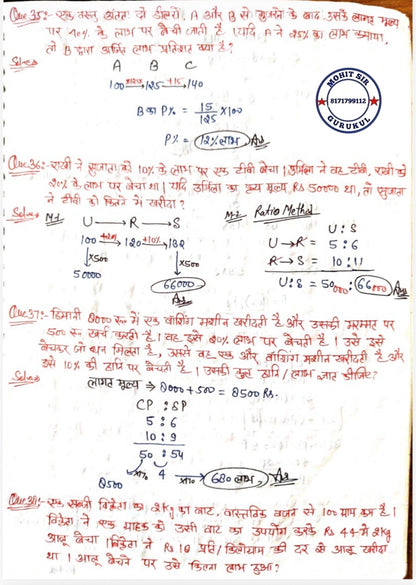 Que 35:- एक वस्तु अंततः दो डीलरों A और B से गुजरने के बाद उसके लागत मूल्य
पर 40% के लाभ पर बेची जाती है। यदि A ने 25% का लाभ कमाया,
तो B द्वारा अर्जित लाभ प्रतिशत क्या है?
Solve
A B C
100 +25% 125 +15 140
B का P% = 15/125 × 100
P% = 12% लाभ, Ans
MOHIT SIR
8171799112
GURUKUL
Que 36:- राखी ने सुजाता को 10% के लाभ पर एक टीवी बेचा। उर्मिला ने वह टीवी, राखी को
20% के लाभ पर बेचा था। यदि उर्मिला का क्रय मूल्य Rs 50000 था, तो सुजाता
ने टीवी को कितने में खरीदा?
Solve M-1 U → R → S
100 +20% 120 +10% 132
↓×500 ↓×500
50000 66000
Ans
M-2 Ratio Method
U : S
U → R = 5 : 6
R → S = 10 : 11
U : S = 50,000 : 66,000 Ans
Que 37:- हिमानी 8000 रू में एक वाशिंग मशीन खरीदती है और उसकी मरम्मत पर
500 रू खर्च करती है। वह इसे 20% लाभ पर बेचती है। उसे इसे
बेचकर जो धन मिलता है, उससे वह एक और वाशिंग मशीन खरीदती है और
इसे 10% की हानि पर बेचती है। उसकी कुल हानि/लाभ ज्ञात कीजिए?
Solve लागत मूल्य ⇒ 8000 + 500 = 8500 Rs.
CP : SP
5 : 6
10 : 9
50 : 54
×170 4 ×170 → 680 लाभ, Ans
8500
Que 38:- एक सब्जी विक्रेता का 2 Kg का बाट, वास्तविक वजन से 100 ग्राम कम है।
विक्रेता ने एक ग्राहक को उसी बाट का उपयोग करके Rs 44 में 2Kg
आलू बेचा। विक्रेता ने Rs 18 प्रति/किलोग्राम की दर से आलू खरीदा
था। आलू बेचने पर उसे कितना लाभ हुआ?